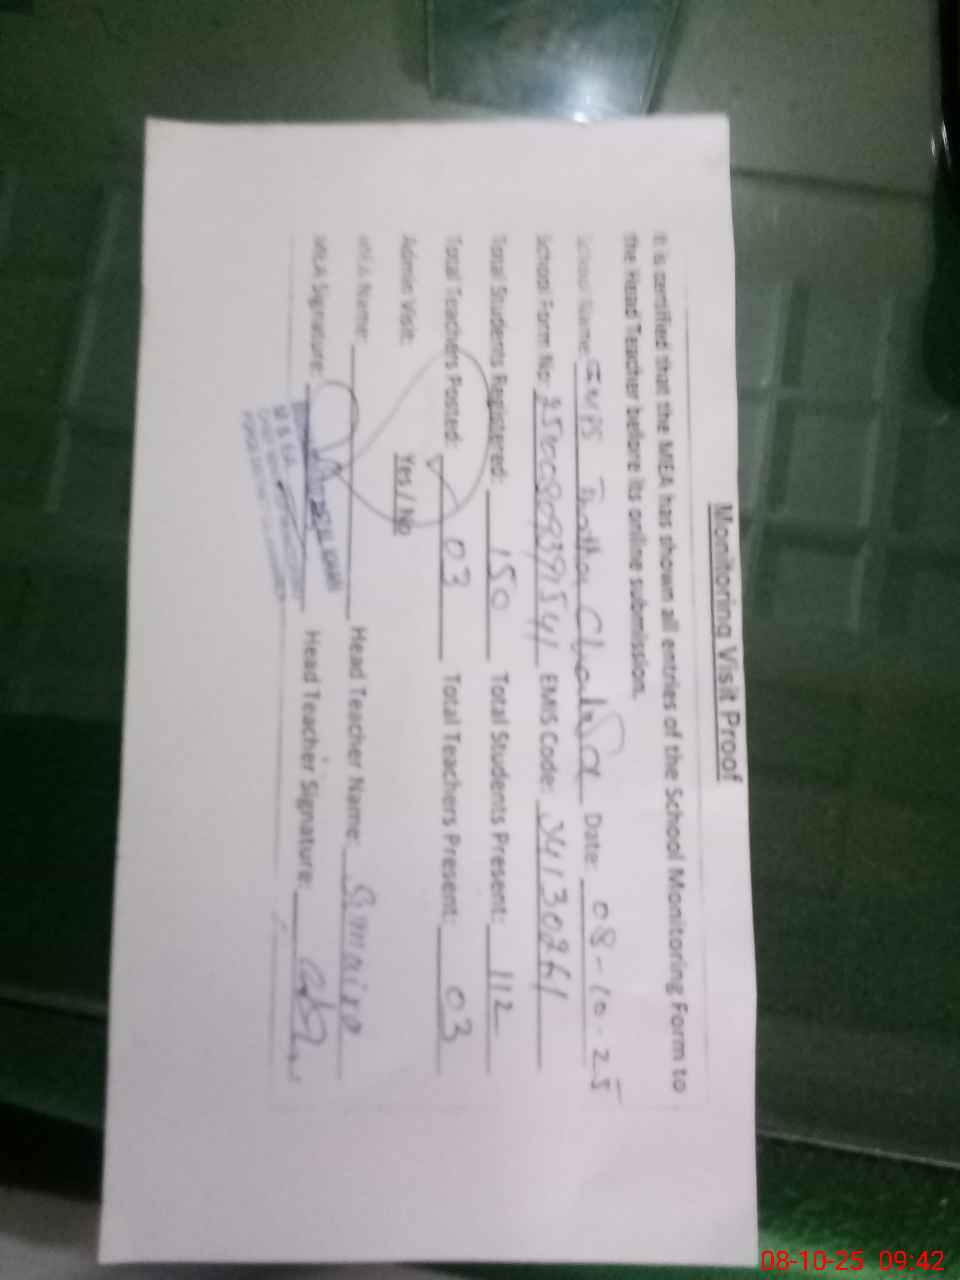 Monitoring Visit Proof
It is certified that the MEA has shown all entries of the School Monitoring Form to
the Head Teacher before its online submission.
School Name: Date: 08-10-25
School Form No: EMIS Code: 34130261
Total Students Registered: 150 Total Students Present: 112
Total Teachers Posted: 03 Total Teachers Present: 03
Admin Visit: Yes / No
MEA Name: Head Teacher Name: Sumaira
MEA Signature: Head Teacher Signature:
08-10-25 09:42